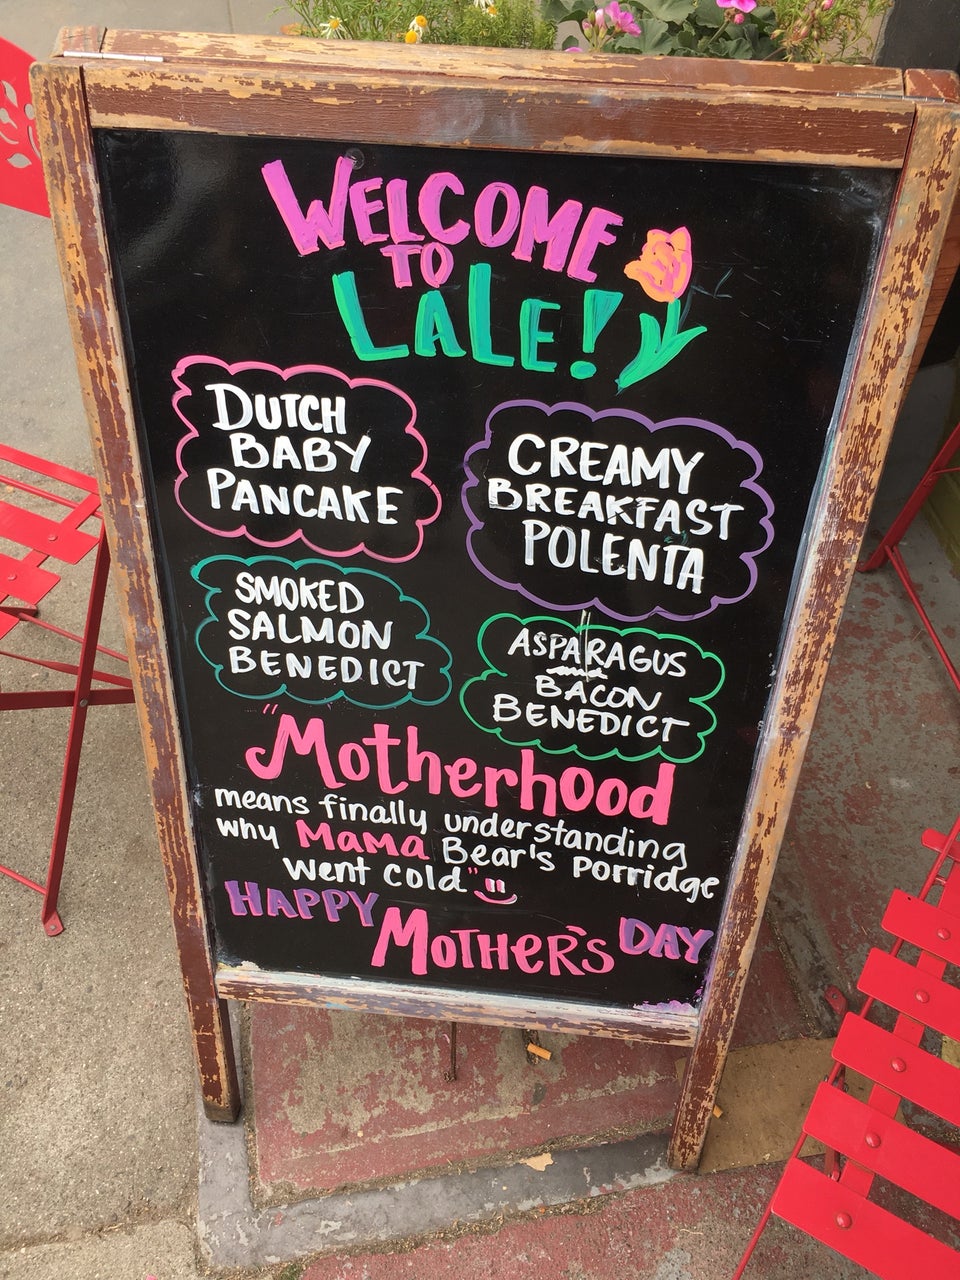 WELCOME
TO
LALE!
DUTCH
BABY
PANCAKE
CREAMY
BREAKFAST
POLENTA
SMOKED
SALMON
BENEDICT
ASPARAGUS
and
BACON
BENEDICT
"Motherhood
means finally understanding
why Mama Bear's Porridge
went cold"
HAPPY MOTHER'S DAY